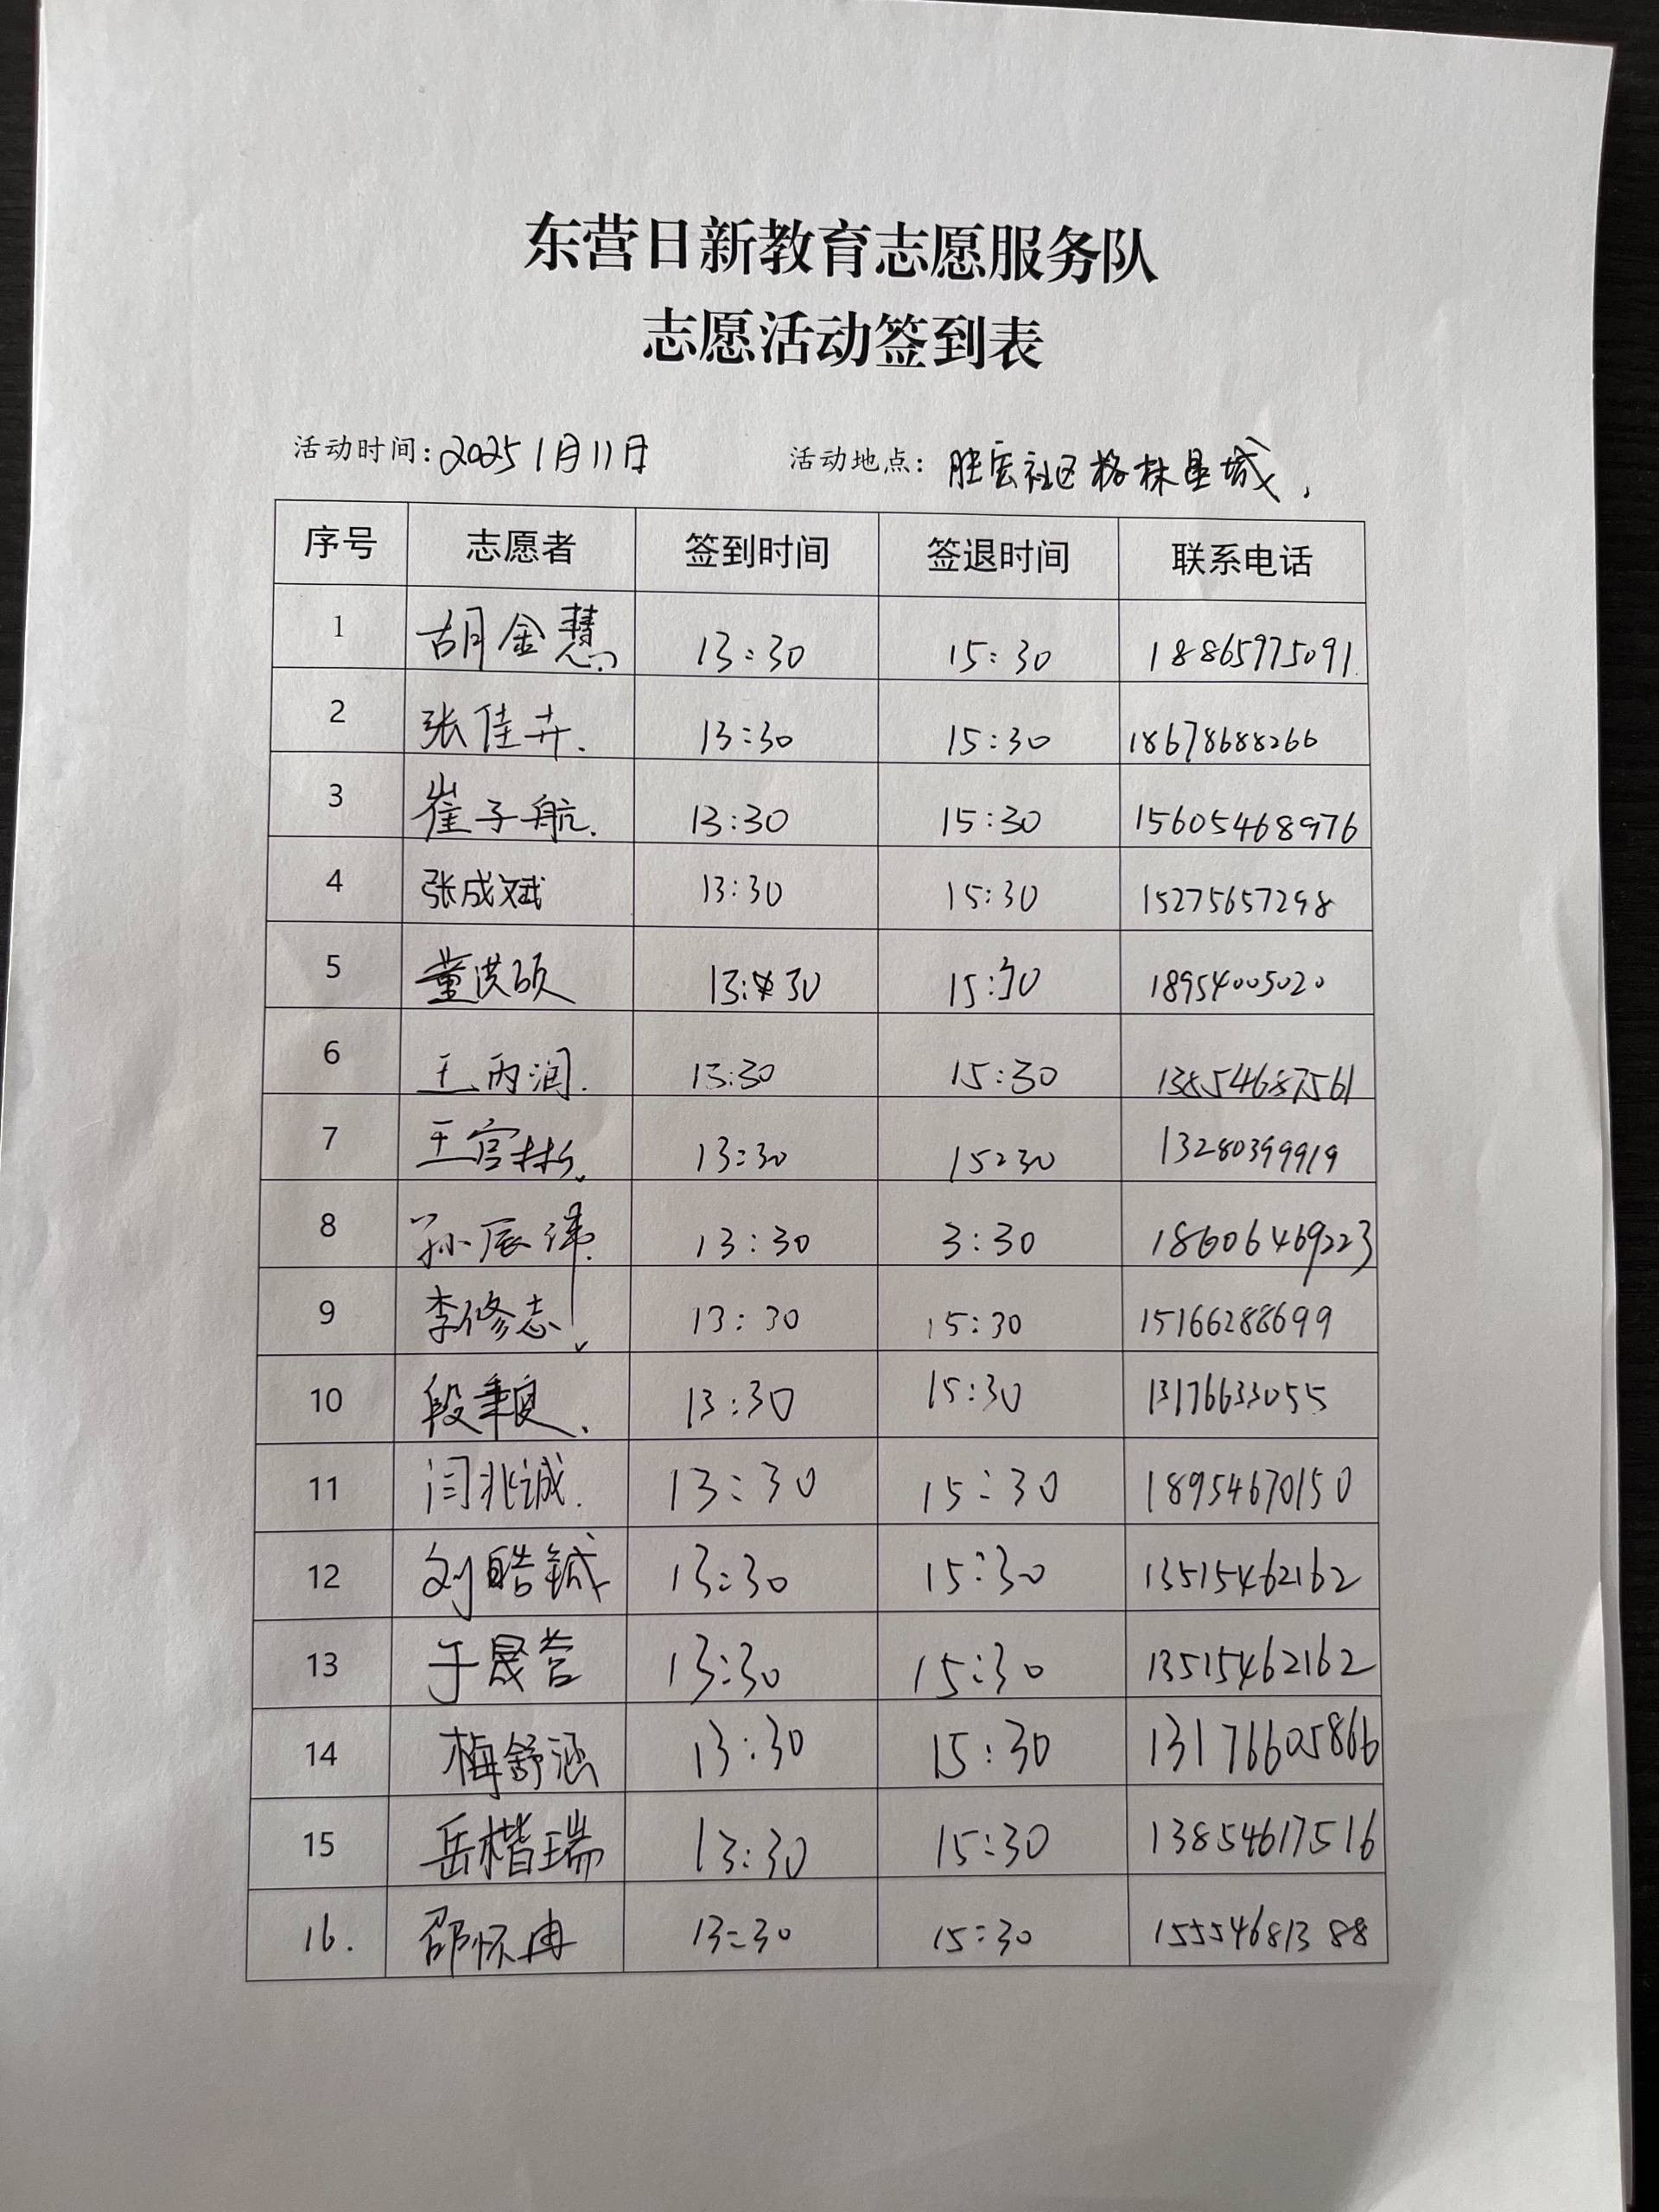 东营日新教育志愿服务队
志愿活动签到表
活动时间：2025 1月11日 活动地点：胜宏社区格林星城
序号 志愿者 签到时间 签退时间 联系电话
1 胡金慧 13:30 15:30 18865975091
2 张佳卉. 13:30 15:30 18678688266
3 崔子航. 13:30 15:30 15605468976
4 张成斌 13:30 15:30 15275657298
5 董洪硕 13:30 15:30 18954005020
6 王丙润. 13:30 15:30 13854687561
7 王官彬. 13:30 15:30 13280399919
8 孙辰 13:30 3:30 18606469223
9 李修志 13:30 15:30 15166288699
10 段秉良. 13:30 15:30 13176633055
11 闫兆诚. 13:30 15:30 18954670150
12 刘皓铖 13:30 15:30 13515462162
13 于晟营 13:30 15:30 13515462162
14 梅舒涵 13:30 15:30 13176605866
15 岳楷瑞 13:30 15:30 13854617516
16. 邵怀冉 13:30 15:30 15554681388